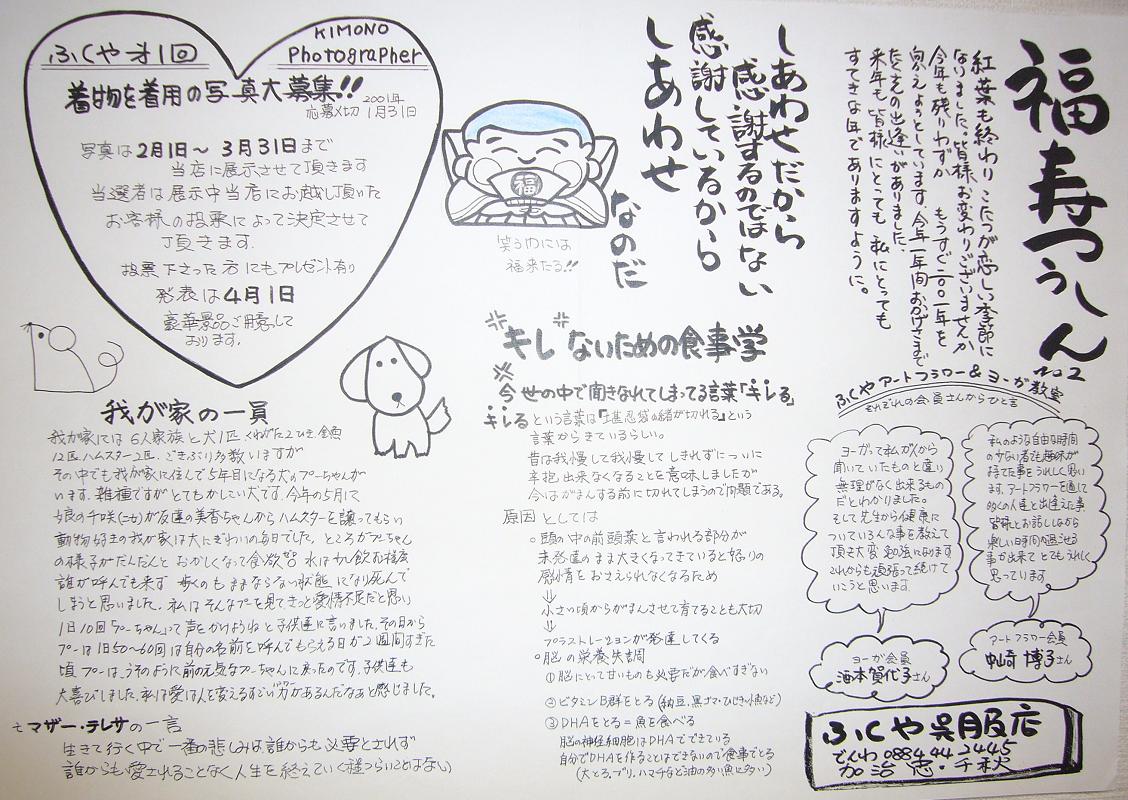 福寿つうしん
no2
紅葉も終わり こたつが恋しい季節に
なりました。皆様、お変わりございませんか
今年も残りわずか もうすぐ二〇〇一年を
迎えようとしています。今年一年間おかげさまで
たくさんの出逢いがありました。
来年も皆様にとっても 私にとっても
すてきな年でありますように。
しあわせだから
感謝するのではない
感謝しているから
しあわせ
なのだ
福
笑う門には
福来たる!!
ふくや才1回
KIMONO
Photographer
着物を着用の写真大募集!!
応募〆切 2001年
1月31日
写真は2月1日～ 3月31日まで
当店に展示させて頂きます
当選者は展示中当店にお越し頂いた
お客様の投票によって決定させて
頂きます.
投票下さった方にもプレゼント有り
発表は4月1日
豪華景品ご用意して
おります.
我が家の一員
我が家には 6人家族と犬1匹 くわがた2ひき、金魚
12匹 ハムスター2匹. ごきぶり多数いますが
その中でも我が家に住んで5年目になる犬のプーちゃんが
います. 雑種ですがとてもかしこい犬です. 今年の5月に
娘の千咲(二女)が友達の美香ちゃんからハムスターを譲ってもらい
動物好きの我が家は大にぎわいの毎日でした. ところがプーちゃん
の様子がだんだんと おかしくなって食欲ゼロ 水は
誰が呼んでも来ず 歩くのも ままならない状態になり死んで
しまうと思いました. 私はそんなプーを見てきっと愛情不足だと思い
1日10回「プーちゃん」って声をかけようねと子供達に言いました. その日から
プーは1日50～60回は自分の名前を呼んでもらえる日が2週間すぎた
頃 プーは、うそのように前の元気なプーちゃんに戻ったのです. 子供達も
大喜びしました. 私は愛は人を変えるすごい"力"があるんだなあと感じました。
マザー・テレサの一言
生きて行く中で一番の悲しみは、誰からも必要とされず
誰からも愛されることなく人生を終えていく程つらいことはない
"キレ"ないための食事学
今世の中で聞きなれてしまってる言葉「キレる」
キレるという言葉は「堪忍袋の緒が切れる」という
言葉からきているらしい。
昔は我慢して我慢して しきれずについに
辛抱出来なくなることを意味しましたが
今はがまんする前に切れてしまうので問題である。
原因としては
○頭の中の前頭葉と言われる部分が
未発達のまま大きくなってきていると怒りの
感情をおさえられなくなるため
⇓
小さい頃からがまんさせて育てることも大切
⇓
プラストレーションが発達してくる
○脳の栄養失調
① 脳にとって甘いものも必要だが食べすぎない
② ビタミンB群をとる (納豆、黒ゴマ・ひじき・小魚など)
③ DHAをとる=魚を食べる
脳の神経細胞はDHAでできている
自分でDHAを作ることはできないので食事でとる
(大とろ、ブリ、ハマチなど油の多い魚に多い)
ふくやアートフラワー&ヨーガ教室
それぞれの会員さんからひと言
私のような自由な時間
の少ない者でも趣味が
持てた事をうれしく思い
ます. アートフラワーを通して
多くの人達と出逢えた事
皆様とお話ししながら
楽しい時間が過せる
事が出来て とてもうれしく
思っています
アートフラワー会員
中山奇 博子さん
ヨーガって私が人から
聞いていたものと違い
無理がなく出来るもの
だとわかりました。
そして先生から健康に
ついていろんな事を教えて
頂き大変勉強になります
これからも頑張って続けて
いこうと思います
ヨーガ会員
酒本賀代子さん
ふくや呉服店
でんわ 0884 44 2445
加治 忠・千秋